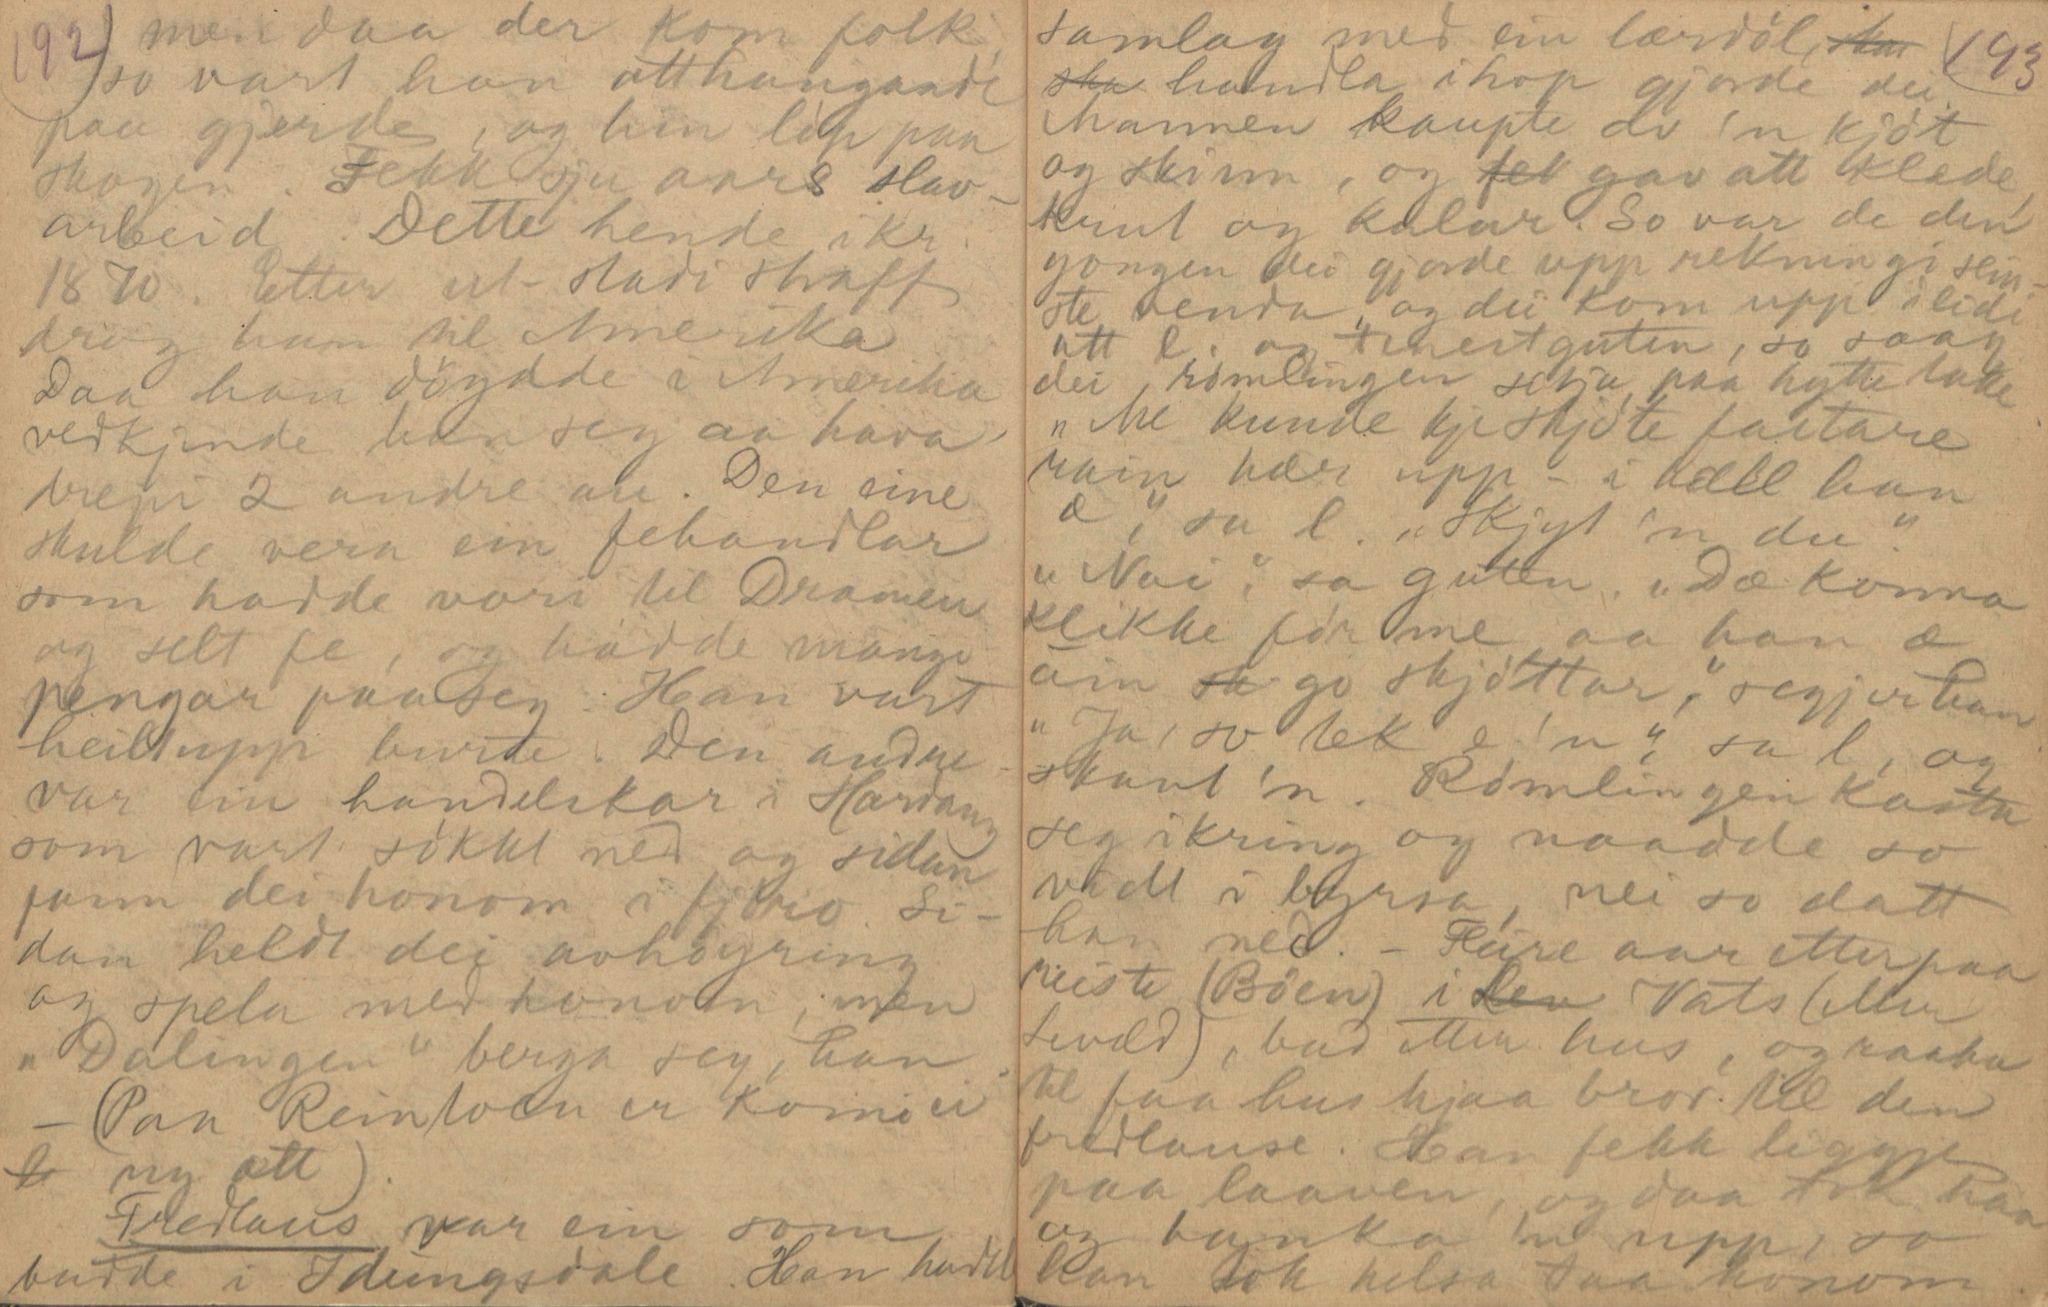 192) men daa der kom folk,
so vart han atthangande
paa gjerde, og hin løp paa
skogen. Fekk sju aars slav-
arbeid. Dette hende ikr.
1870. Etter ut-stadi straff
drog han til Amerika
Daa han döydde i Amerika
vedkjende han seg aa hava
drepi 2 andre au. Den eine
skulde vera ein fehandlar
som hadde vori til Dramen
og selt fe, og hadde mange
pengar paa seg. Han vart
heiltupp burte. Den andre
var ein handelskar i Hardang
som vart sökkt ned og sidan
fann dei honom i fjöro. Si-
dan heldt dei avhöyring
og spela med honom, men
"Dalingen" berga seg, han.
- (Paa Reintoen er komi ei
ny att).
Fredlaus var ein som
budde i Idungsdale. Han hadde
193
samlag med ein lærdöl, skar
ska handla ihop gjorde dei.
Mannen kaupte av 'n kjöt
og skinn, og fek gav att klede,
krut og kular. So var de den
gongen dei gjorde upp rekningi sein-
ste venda, og dei kom upp i lidi
att l. og tenestguten, so saag
dei römlingen sitja paa hyttetake
"Me kunde kje skjöte fastare
rain hær upp - i hæll han
æ," sa l. "Skjyt 'n du".
"Nai", sa guten. "Dæ konna
klikke för me, aa han æ
ain sk go skjöttar," segjer han
"Ja, so tek e 'n", sa l, og
skaut 'n. Römlingen kasta
seg ikring og naadde so
vidt i byrsa, nei so datt
han ned. - Fleire aar etterpaa
reiste (Böen) i Vats (eller
Levæld), bad etter hus, og raaka
til faa hus hjaa bror til den
fredlause. Han fekk liggje
paa laaven, og daa tok han
og banka 'n upp, so
han tok helsa taa honom.